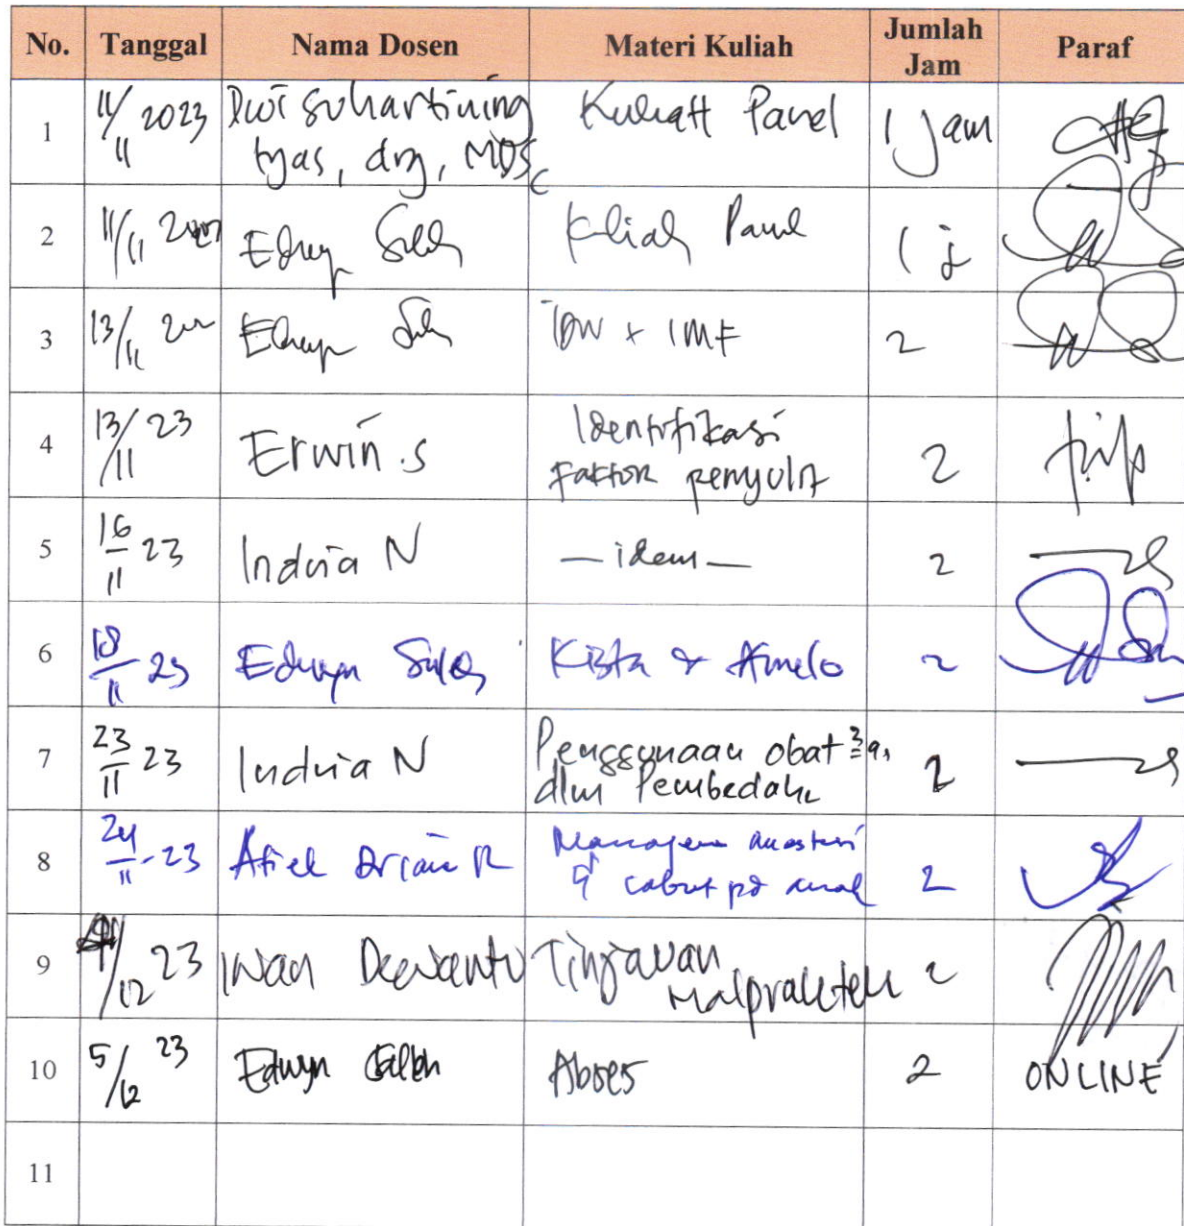 No. Tanggal Nama Dosen Materi Kuliah Jumlah Jam Paraf
1 11/11 2023 Dwi Suhartining tyas, drg, MDSc Kuliah Panel 1 Jam
2 11/11 Edwyn Saleh Kuliah Panel 1 j
3 13/11 Edwyn Saleh IDW + IMF 2
4 13/11 23 Erwin.S Identifikasi Faktor penyulit 2
5 16/11 23 Indria N — idem — 2
6 18/11 23 Edwyn Saleh Kista & Amelo 2
7 23/11 23 Indria N Penggunaan obat²an dlm Pembedahan 2
8 24/11-23 R cabut pd anak 2
9 /12 23 Iwan Dewanto Tinjauan Malpraktek 2
10 5/12 23 Edwyn Saleh Abses 2 ONLINE
11